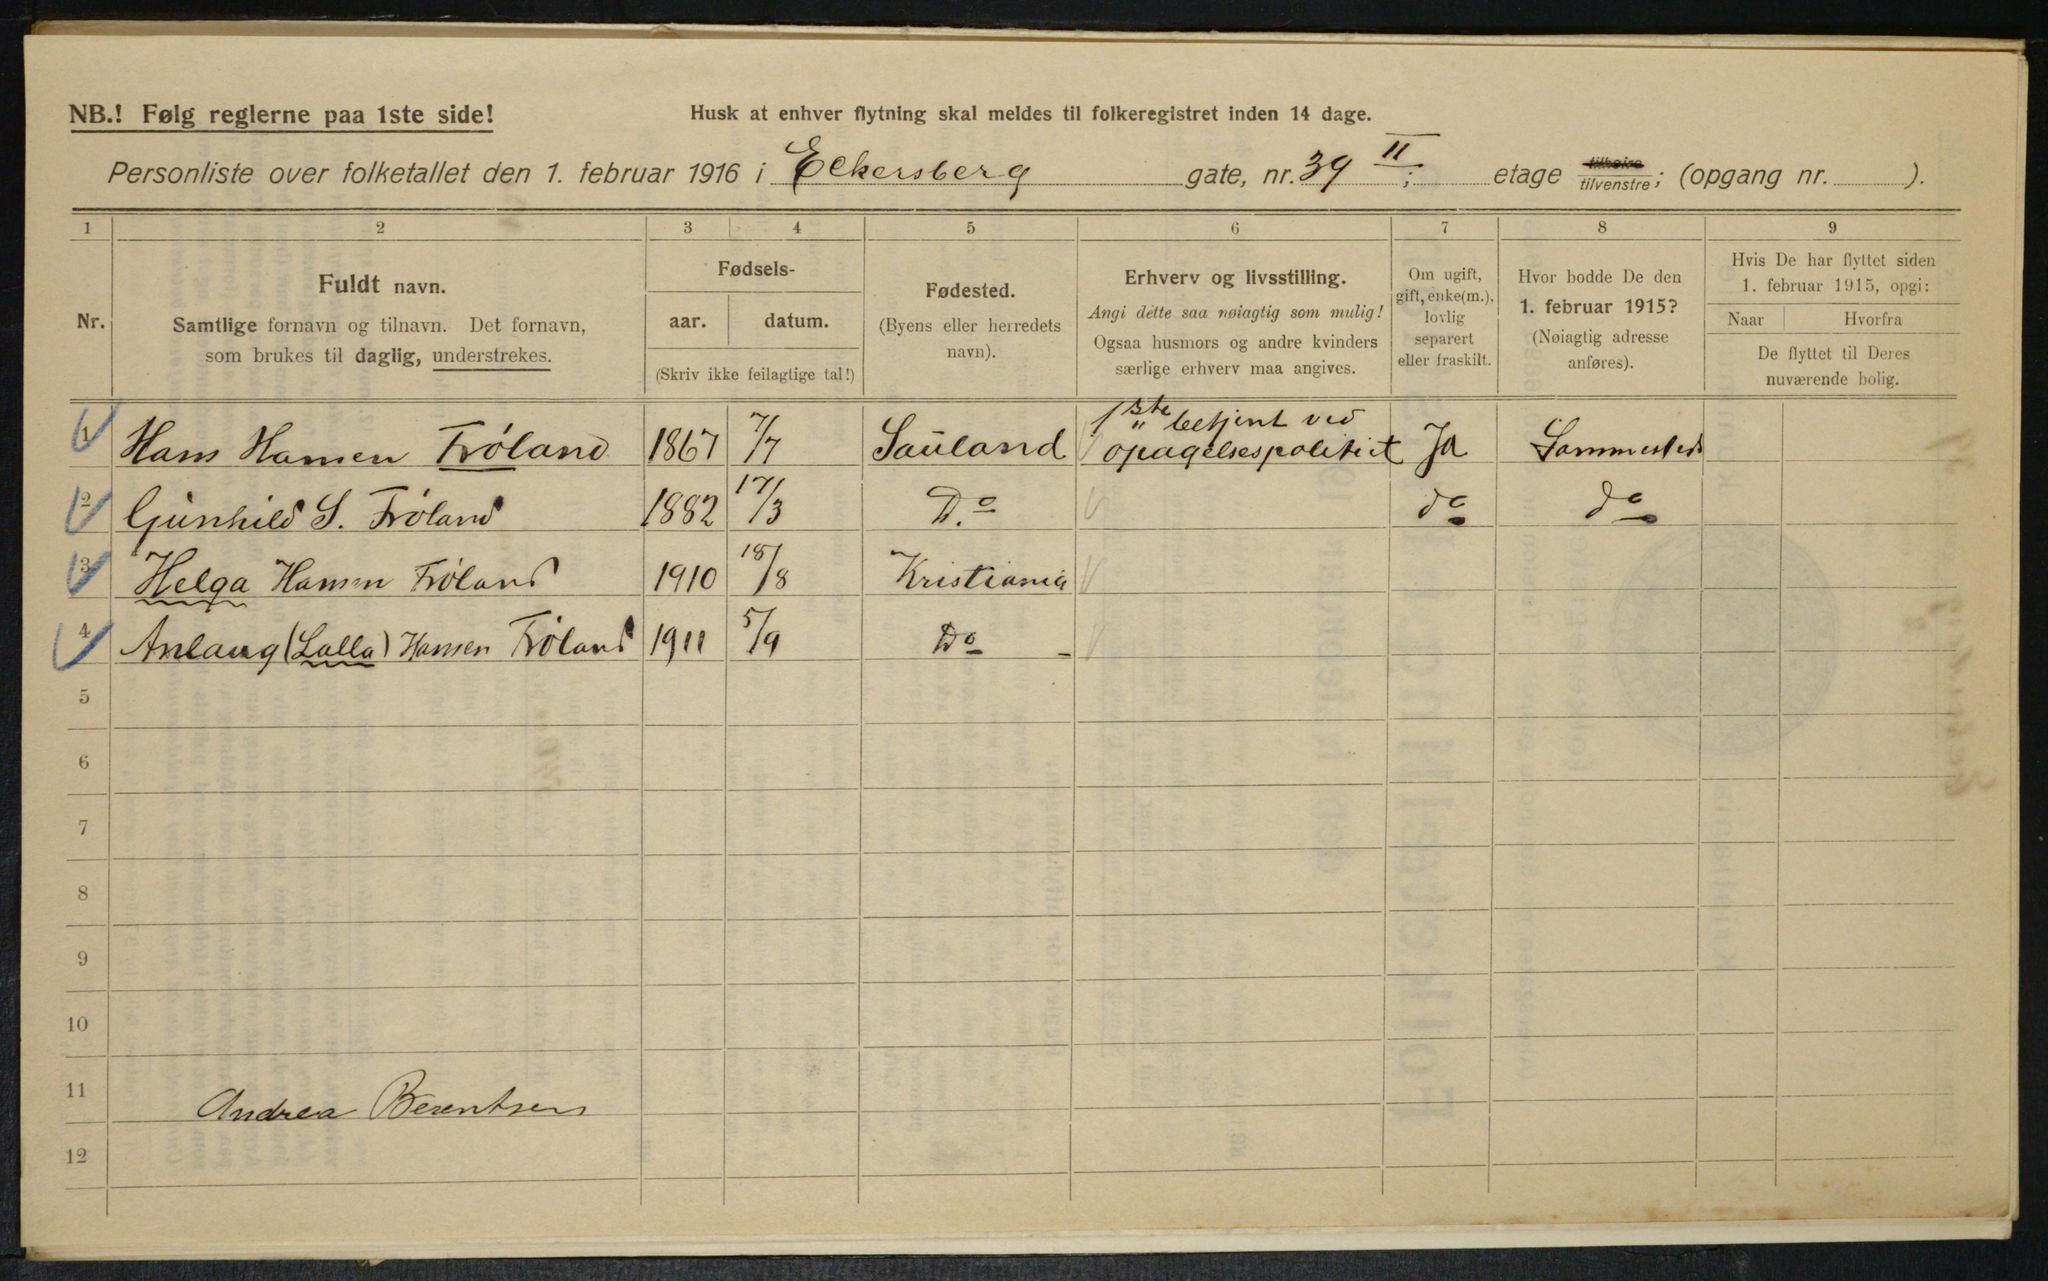 NB.! Følg reglerne paa 1ste side!
Husk at enhver flytning skal meldes til folkeregistret inden 14 dage.
Personliste over folketallet den 1. februar 1916 i Eckersberg gate, nr. 39 II; etage tilhøire tilvenstre; (opgang nr. ).
1 2 3 4 5 6 7 8 9
Nr.
Fuldt navn.
Samtlige fornavn og tilnavn. Det fornavn,
som brukes til daglig, understrekes.
Fødsels-
aar. datum.
(Skriv ikke feilagtige tal!)
Fødested.
(Byens eller herredets
navn).
Erhverv og livsstilling.
Angi dette saa nøiagtig som mulig!
Ogsaa husmors og andre kvinders
særlige erhverv maa angives.
Om ugift,
gift, enke(m.),
lovlig
separert
eller fraskilt.
Hvor bodde De den
1. februar 1915?
(Nøiagtig adresse
anføres).
Hvis De har flyttet siden
1. februar 1915, opgi:
Naar Hvorfra
De flyttet til Deres
nuværende bolig.
1 Hans Hansen Fróland 1867 7/7 Sauland 1ste betjent ved
opagelsespolitiet Ja Sammesteds
2 Gunhild S. Fróland 1882 17/3 Do do do
3 Helga Hansen Fróland 1910 18/8 Kristiania
4 Anlaug (Lalla) Hansen Fróland 1911 5/9 Do -
5
6
7
8
9
10
11 Andrea Berentsen
12